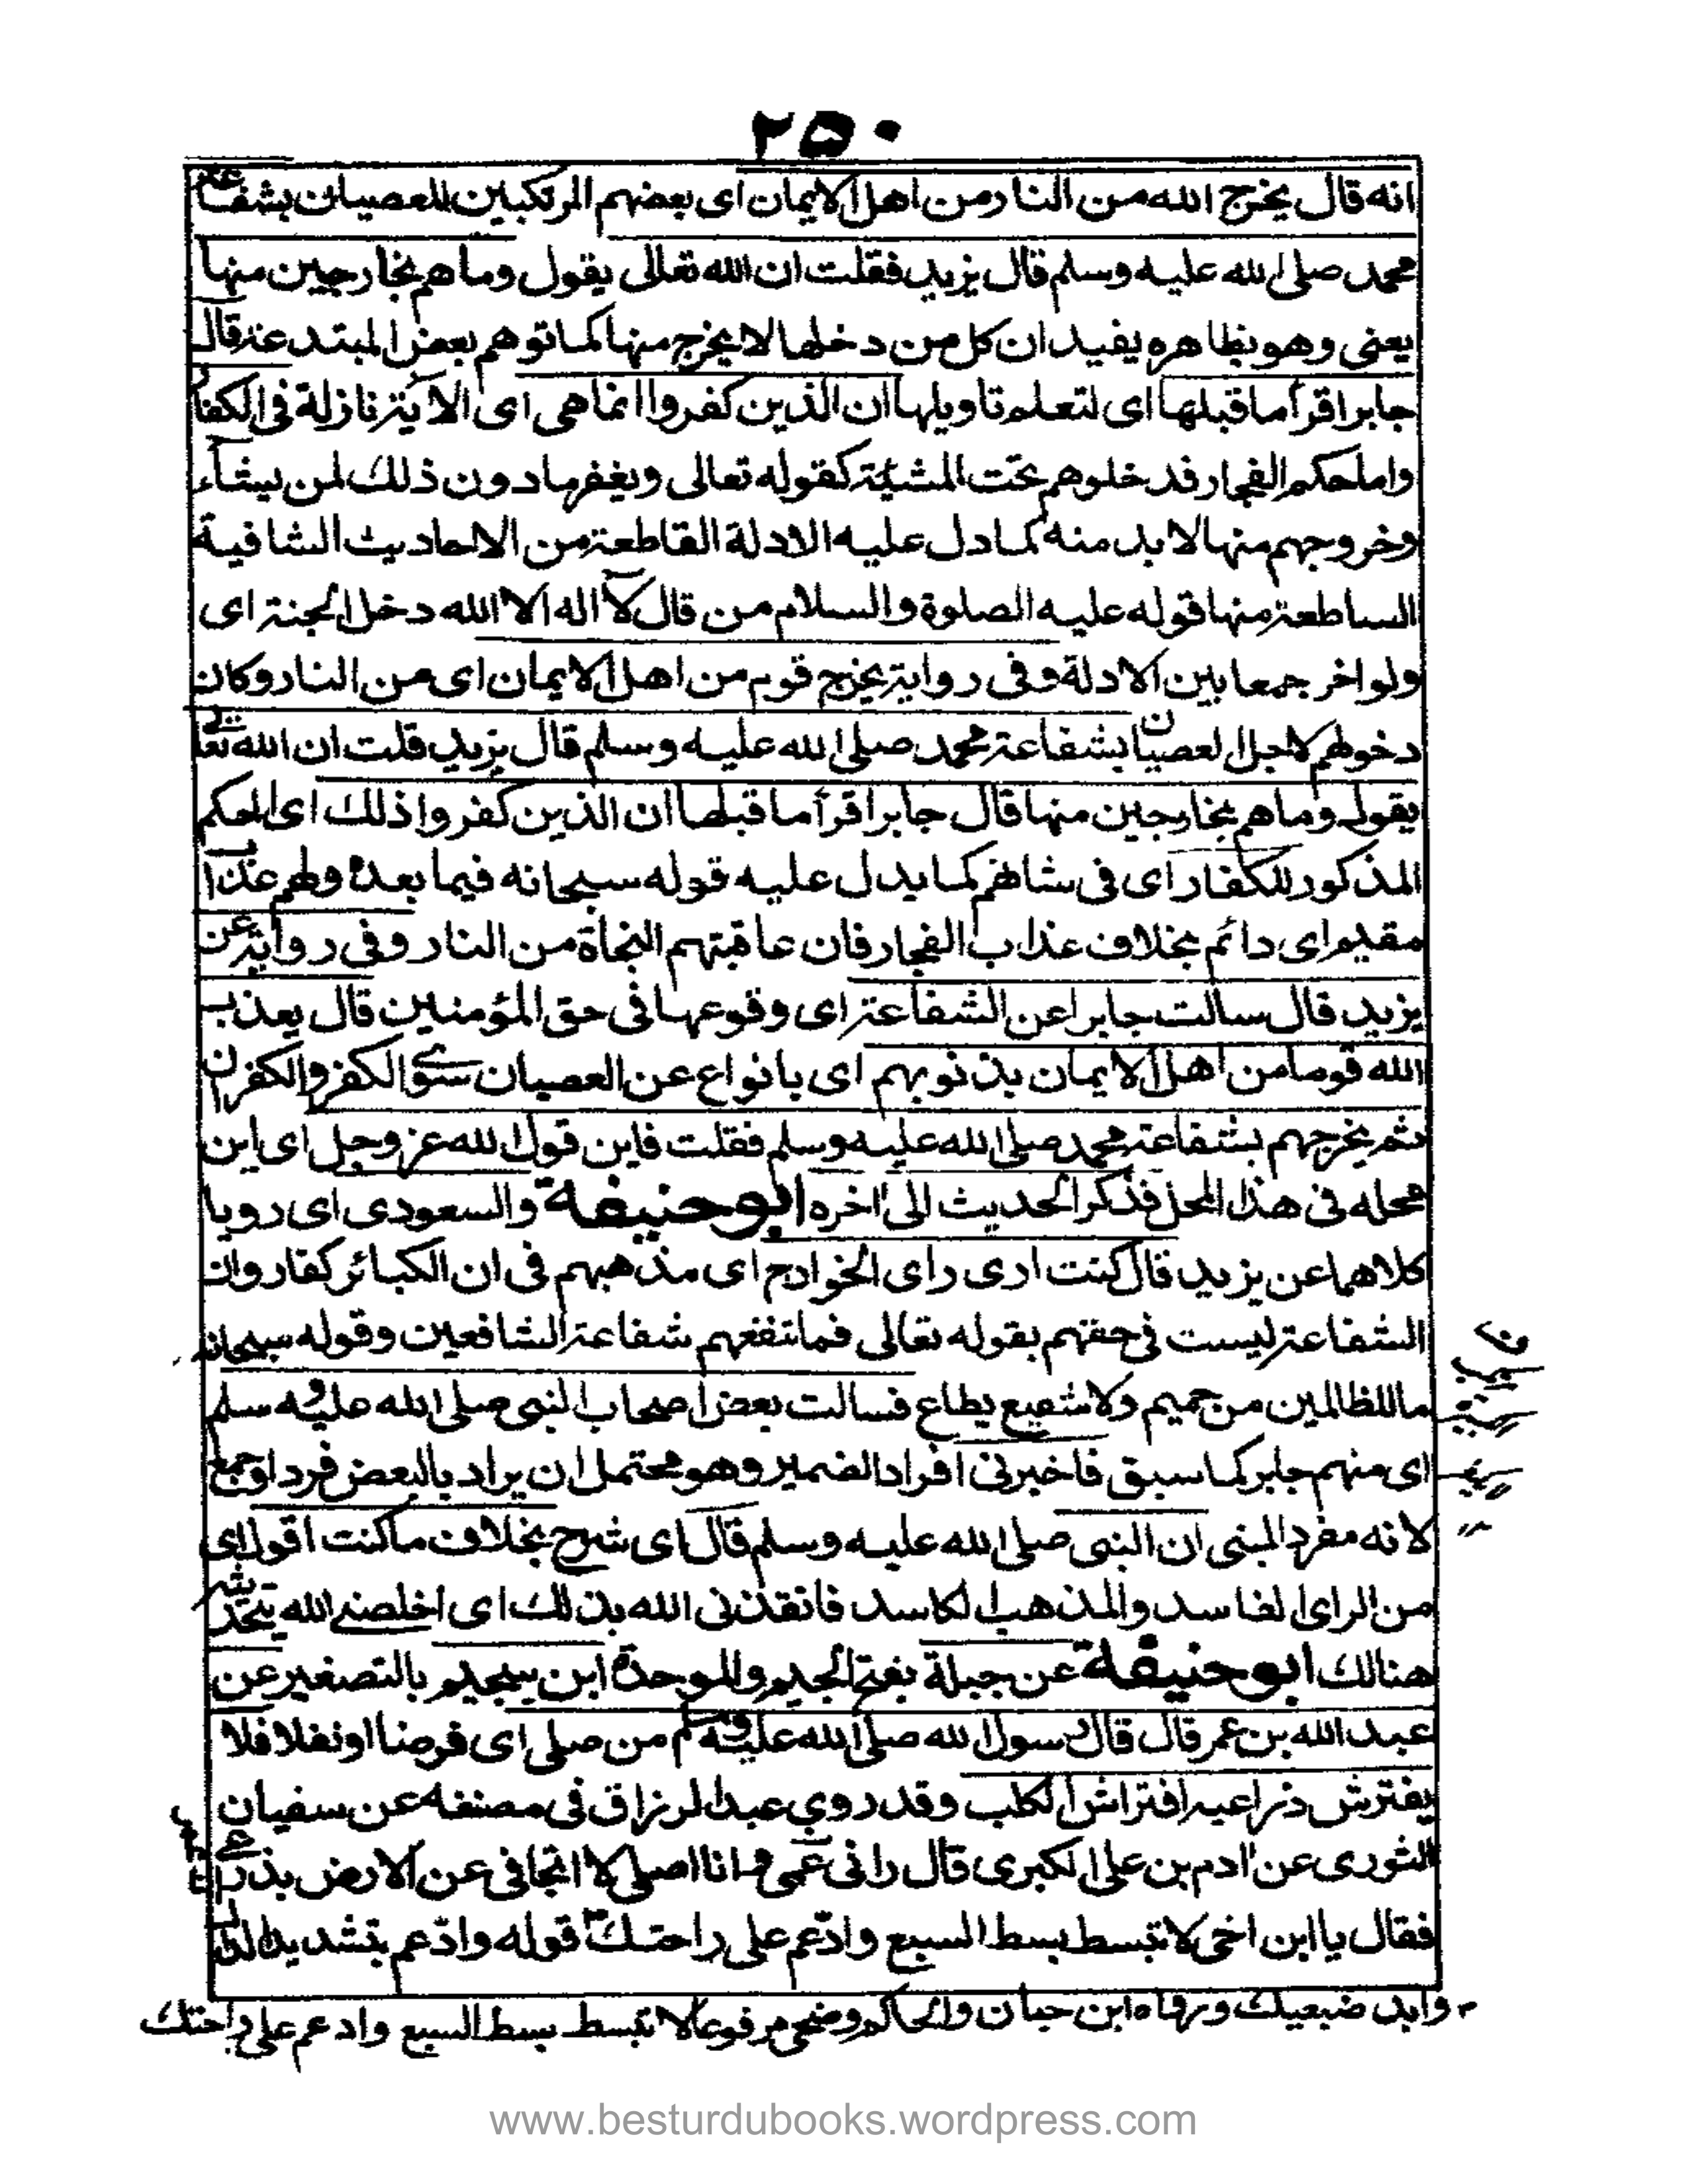 ٢٥٠
انه قال يخرج الله من النار من اهل الايمان اى بعضهم المرتكبين للعصيان بشفاعة
محمد صلى الله عليه وسلم قال يزيد فقلت ان الله تعالى يقول وما هم بخارجين منها
يعنى وهو بظاهره يفيد ان كل من دخلها لا يخرج منها كما توهم بعض المبتدعة قال
جابر اقرأ ما قبلها اى لتعلم تاويلها ان الذين كفروا انما هى اى الاية نازلة فى الكفار
واما حكم الفجار فدخلوهم تحت المشيئة كقوله تعالى ويغفر ما دون ذلك لمن يشآء
وخروجهم منها لا بد منه كما دل عليه الادلة القاطعة من الاحاديث الشافية
الساطعة منها قوله عليه الصلوة والسلام من قال لآ اله الا الله دخل الجنة اى
ولو اخر جمعا بين الادلة وفى رواية يخرج قوم من اهل الايمان اى من النار وكان
دخولهم لاجل العصيان بشفاعة محمد صلى الله عليه وسلم قال يزيد قلت ان الله تعالى
يقول وما هم بخارجين منها قال جابر اقرأ ما قبلها ان الذين كفروا ذلك اى الحكم
المذكور للكفار اى فى شانهم كما يدل عليه قوله سبحانه فيما بعده ولهم عذاب
مقيم اى دائم بخلاف عذاب الفجار فان عاقبتهم النجاة من النار وفى رواية عن
يزيد قال سالت جابرا عن الشفاعة اى وقوعها فى حق المؤمنين قال يعذب
الله قوما من اهل الايمان بذنوبهم اى بانواع عن العصيان سوى الكفر والكفران
ثم يخرجهم بشفاعة محمد صلى الله عليه وسلم فقلت فاين قول الله عز وجل اى اين
محله فى هذا المحل فذكر الحديث الى اخره ابو حنيفة والسعودى اى رويا
كلاهما عن يزيد قال كنت ارى راى الخوارج اى مذهبهم فى ان الكبائر كفار وان
الشفاعة ليست فى حقهم بقوله تعالى فما تنفعهم شفاعة الشافعين وقوله سبحانه
ما للظالمين من حميم ولا شفيع يطاع فسالت بعض اصحاب النبى صلى الله عليه وسلم
اى منهم جابر كما سبق فاخبرنى افراد الضمير وهو محتمل ان يراد بالبعض فردا وجمع
لانه مفرد المبنى ان النبى صلى الله عليه وسلم قال اى شرح بخلاف ما كنت اقول اى
من الراى الفاسد والمذهب الكاسد فانقذنى الله بذلك اى اخلصنى الله
هنالك ابو حنيفة عن جبلة بفتح الجيم والموحدة ابن سحيم بالتصغير عن
عبد الله بن عمر قال قال رسول الله صلى الله عليه وسلم من صلى اى فرضا او نفلا فلا
يفترش ذراعيه افتراش الكلب وقد روى عبد الرزاق فى مصنفه عن سفيان
الثورى عن ادم بن على البكرى قال رانى عمى وانا اصلى لا اتجافى عن الارض بذراعى
فقال يا ابن اخى لا تبسط بسط السبع وادّعم على راحتك قوله وادّعم بتشديد الدال
وابد ضبعيك ورواه ابن حبان والحاكم وصححى مرفوعا لا تبسط بسط السبع وادعم على راحتك
www.besturdubooks.wordpress.com